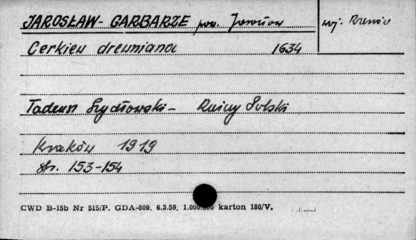 JAROSŁAW - GARBARZE pow. Jarosław woj. Rzeszów
Cerkiew drewniana 1634
Tadeusz Szydłowski - Ruiny Polski
Kraków 1919
str. 153-154
CWD B-15b Nr 515/P. GDA-809. 6.3.59. karton 180/V.